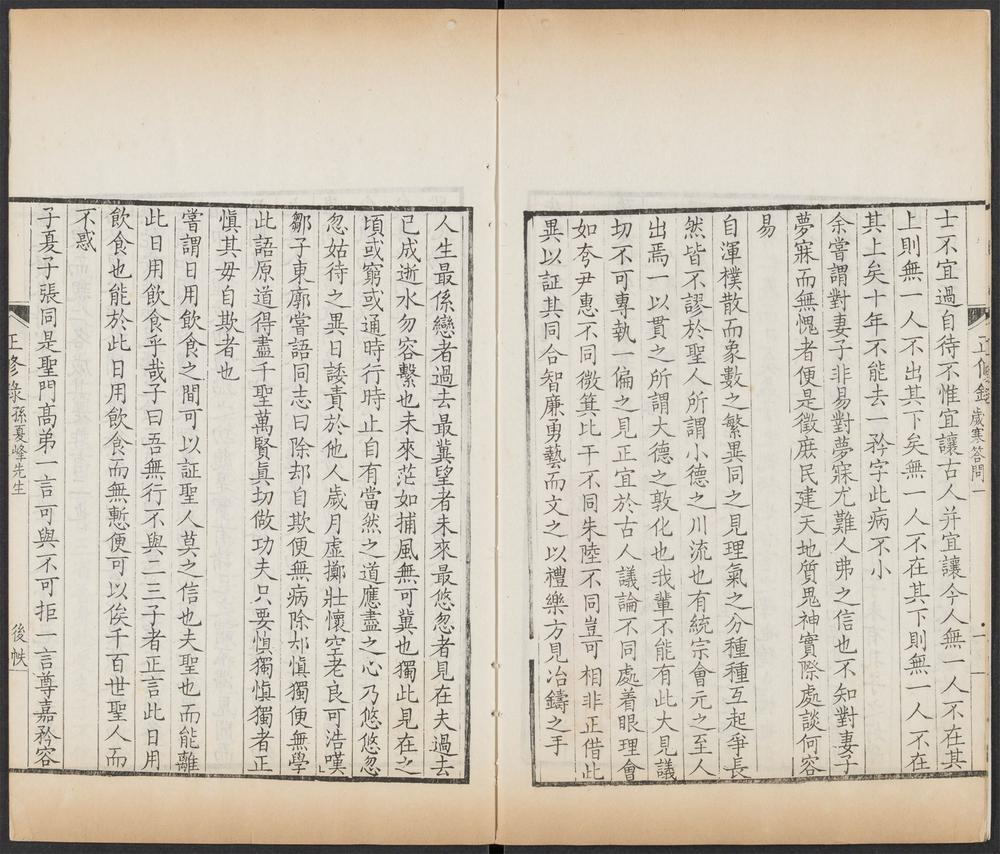 正修錄 歲寒答問一
士不宜過自待不惟宜讓古人并宜讓今人無一人不在其
上則無一人不出其下矣無一人不在其下則無一人不在
其上矣十年不能去一矜字此病不小
余嘗謂對妻子非易對夢寐尤難人弗之信也不知對妻子
夢寐而無愧者便是徵庶民建天地質鬼神實際處談何容
易
自渾樸散而象數之繁異同之見理氣之分種種互起爭長
然皆不謬於聖人所謂小德之川流也有統宗會元之至人
出焉一以貫之所謂大德之敦化也我輩不能有此大見議
切不可專執一偏之見正宜於古人議論不同處着眼理會
如夸尹惠不同微箕比干不同朱陸不同豈可相非正借此
異以証其同合智廉勇藝而文之以禮樂方見冶鑄之手
人生最係戀者過去最冀望者未來最悠忽者見在夫過去
已成逝水勿容繫也未來茫如捕風無可冀也獨此見在之
頃或窮或通時行時止自有當然之道應盡之心乃悠悠忽
忽姑待之異日諉責於他人歲月虛擲壯懷空老良可浩嘆
鄒子東廓嘗語同志曰除却自欺便無病除却愼獨便無學
此語原道得盡千聖萬賢眞切做功夫只要愼獨愼獨者正
愼其毋自欺者也
嘗謂日用飲食之間可以証聖人莫之信也夫聖也而能離
此日用飲食乎哉子曰吾無行不與二三子者正言此日用
飲食也能於此日用飲食而無慙便可以俟千百世聖人而
不惑
子夏子張同是聖門高弟一言可與不可拒一言尊嘉矜容
正修錄 孫夏峰先生
後帙